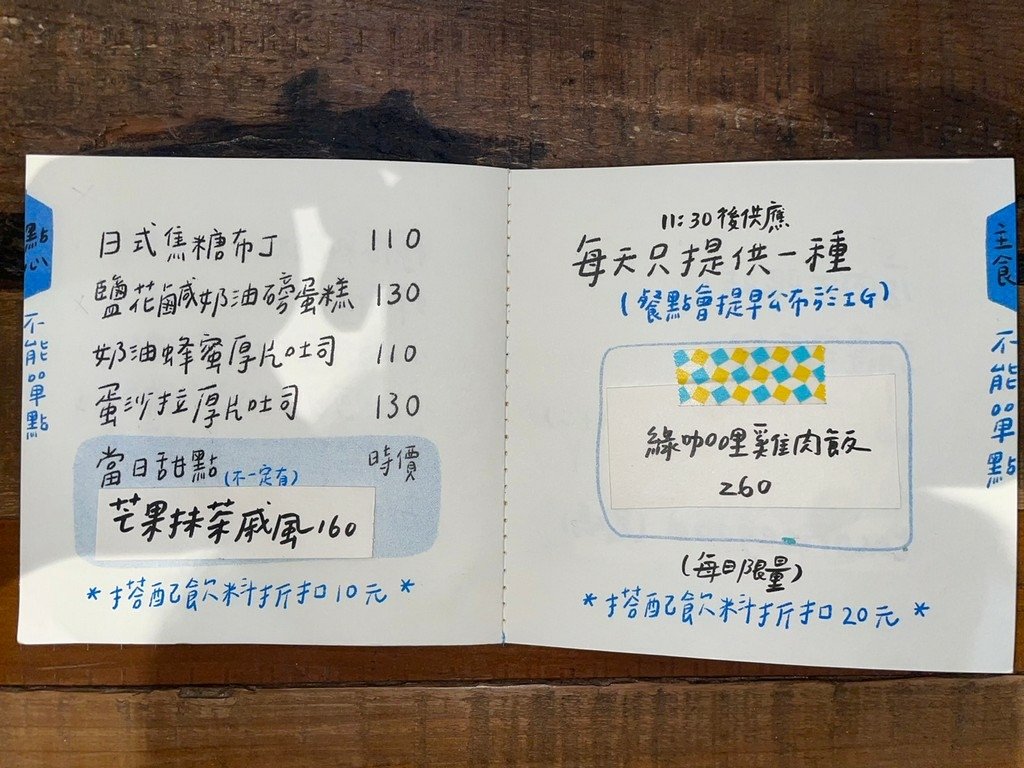 點心
不能單點
日式焦糖布丁 110
鹽花鹹奶油磅蛋糕 130
奶油蜂蜜厚片吐司 110
蛋沙拉厚片吐司 130
當日甜點(不一定有) 時價
芒果抹茶戚風160
*搭配飲料折扣10元*
主食
不能單點
11:30後供應
每天只提供一種
(餐點會提早公布於IG)
綠咖哩雞肉飯
260
(每日限量)
*搭配飲料折扣20元*